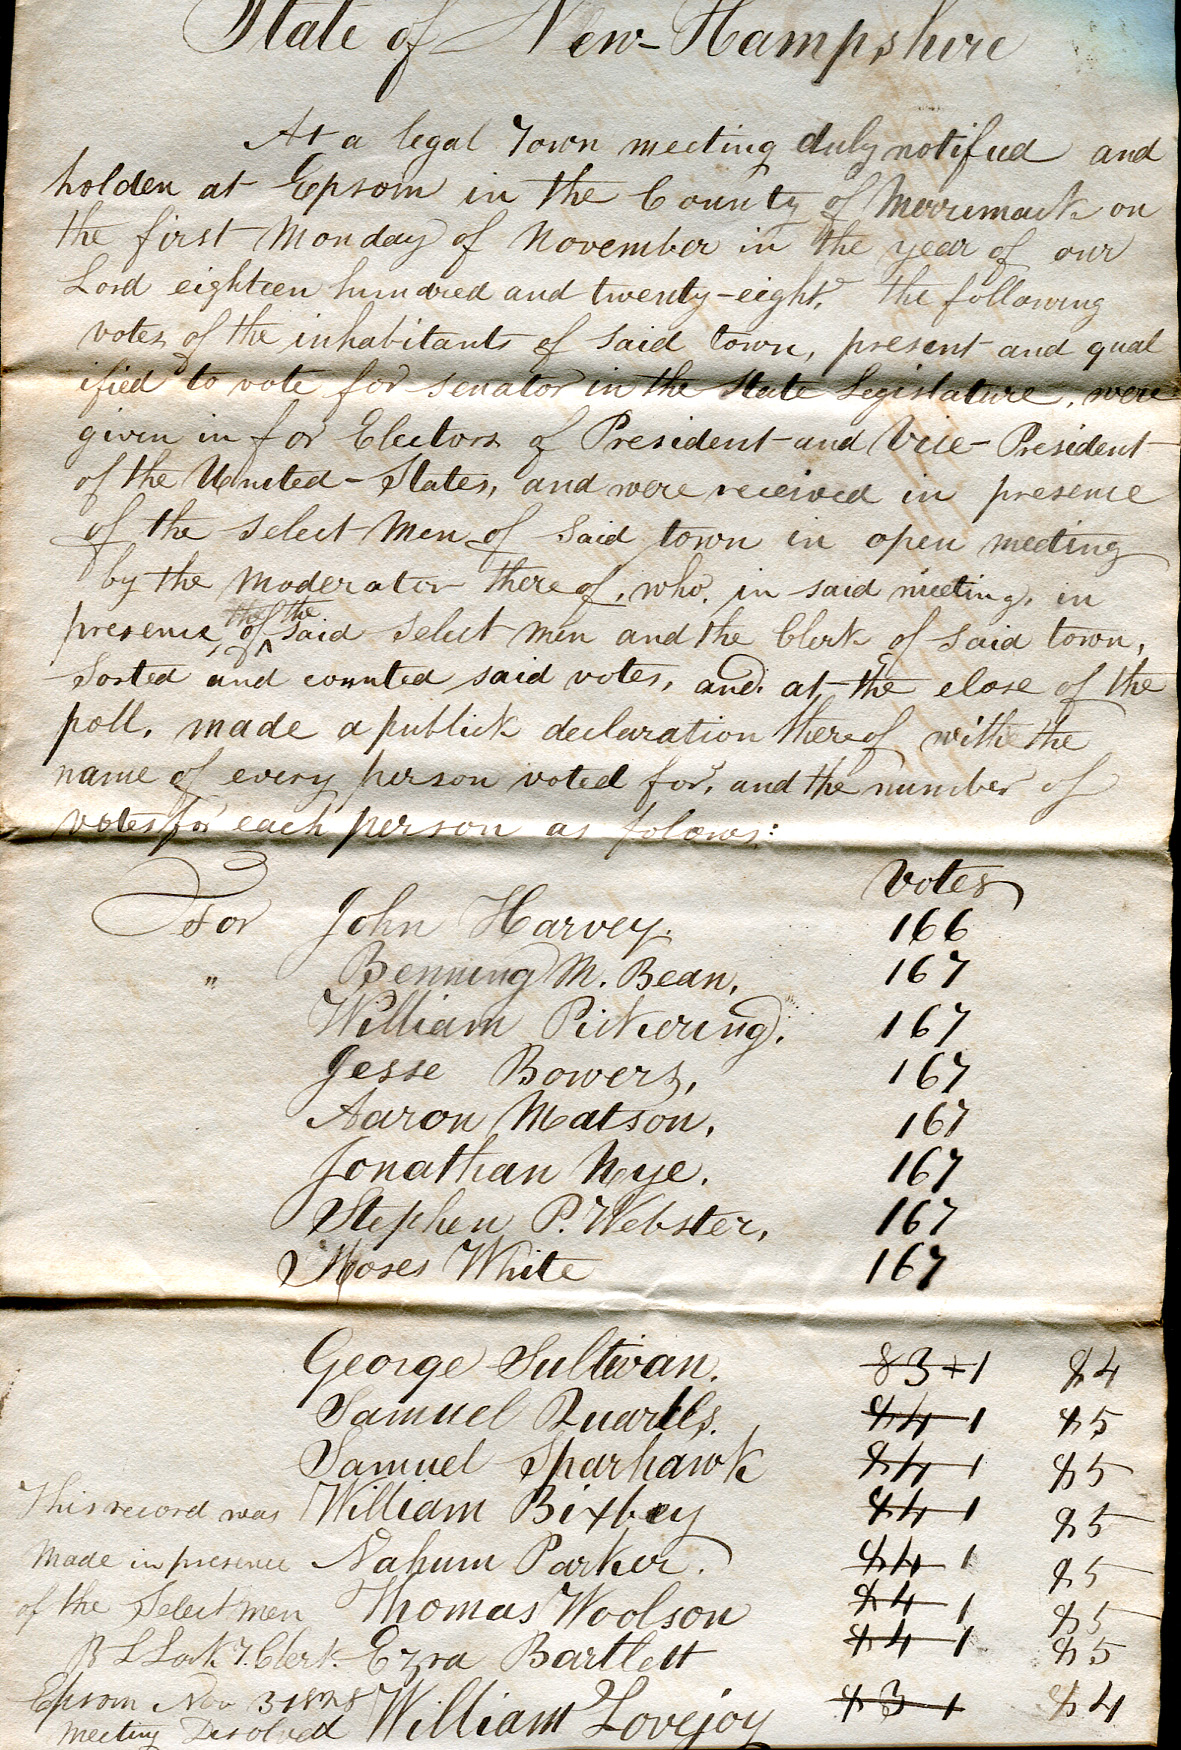 State of New-Hampshire
At a legal Town meeting duly notified and
holden at Epsom in the County of Merrimack on
the first Monday of November in the year of our
Lord eighteen hundred and twenty-eight, the following
votes of the inhabitants of said town, present and qual
ified to vote for senator in the State Legislature, were
given in for Electors of President and Vice-President
of the United-States, and were received in presence
of the select Men of said town in open meeting
by the Moderator there of, who, in said meeting, in
presence of the said select men and the Clerk of said town,
Sorted and counted said votes, and at the close of the
poll, made a publick declaration thereof with the
name of every person voted for, and the number of
votes for each person as folows:
Votes
For John Harvey. 166
" Benning M. Bean, 167
William Pickering. 167
Jesse Bowers, 167
Aaron Matson, 167
Jonathan Nye. 167
Stephen P. Webster, 167
Moses White 167
George Sullivan. 83+1 84
Samuel Quarles. 84 1 85
Samuel Sparhawk 84 1 85
This record was William Bixbey 84 1 85
Made in presence Nahum Parker. 84 1 85
of the Selectmen Thomas Woolson 84 1 85
L Lock T. Clerk Ezra Bartlett 84 1 85
Epsom Nov 3 1828 William Lovejoy 83 1 84
Meeting Desolved